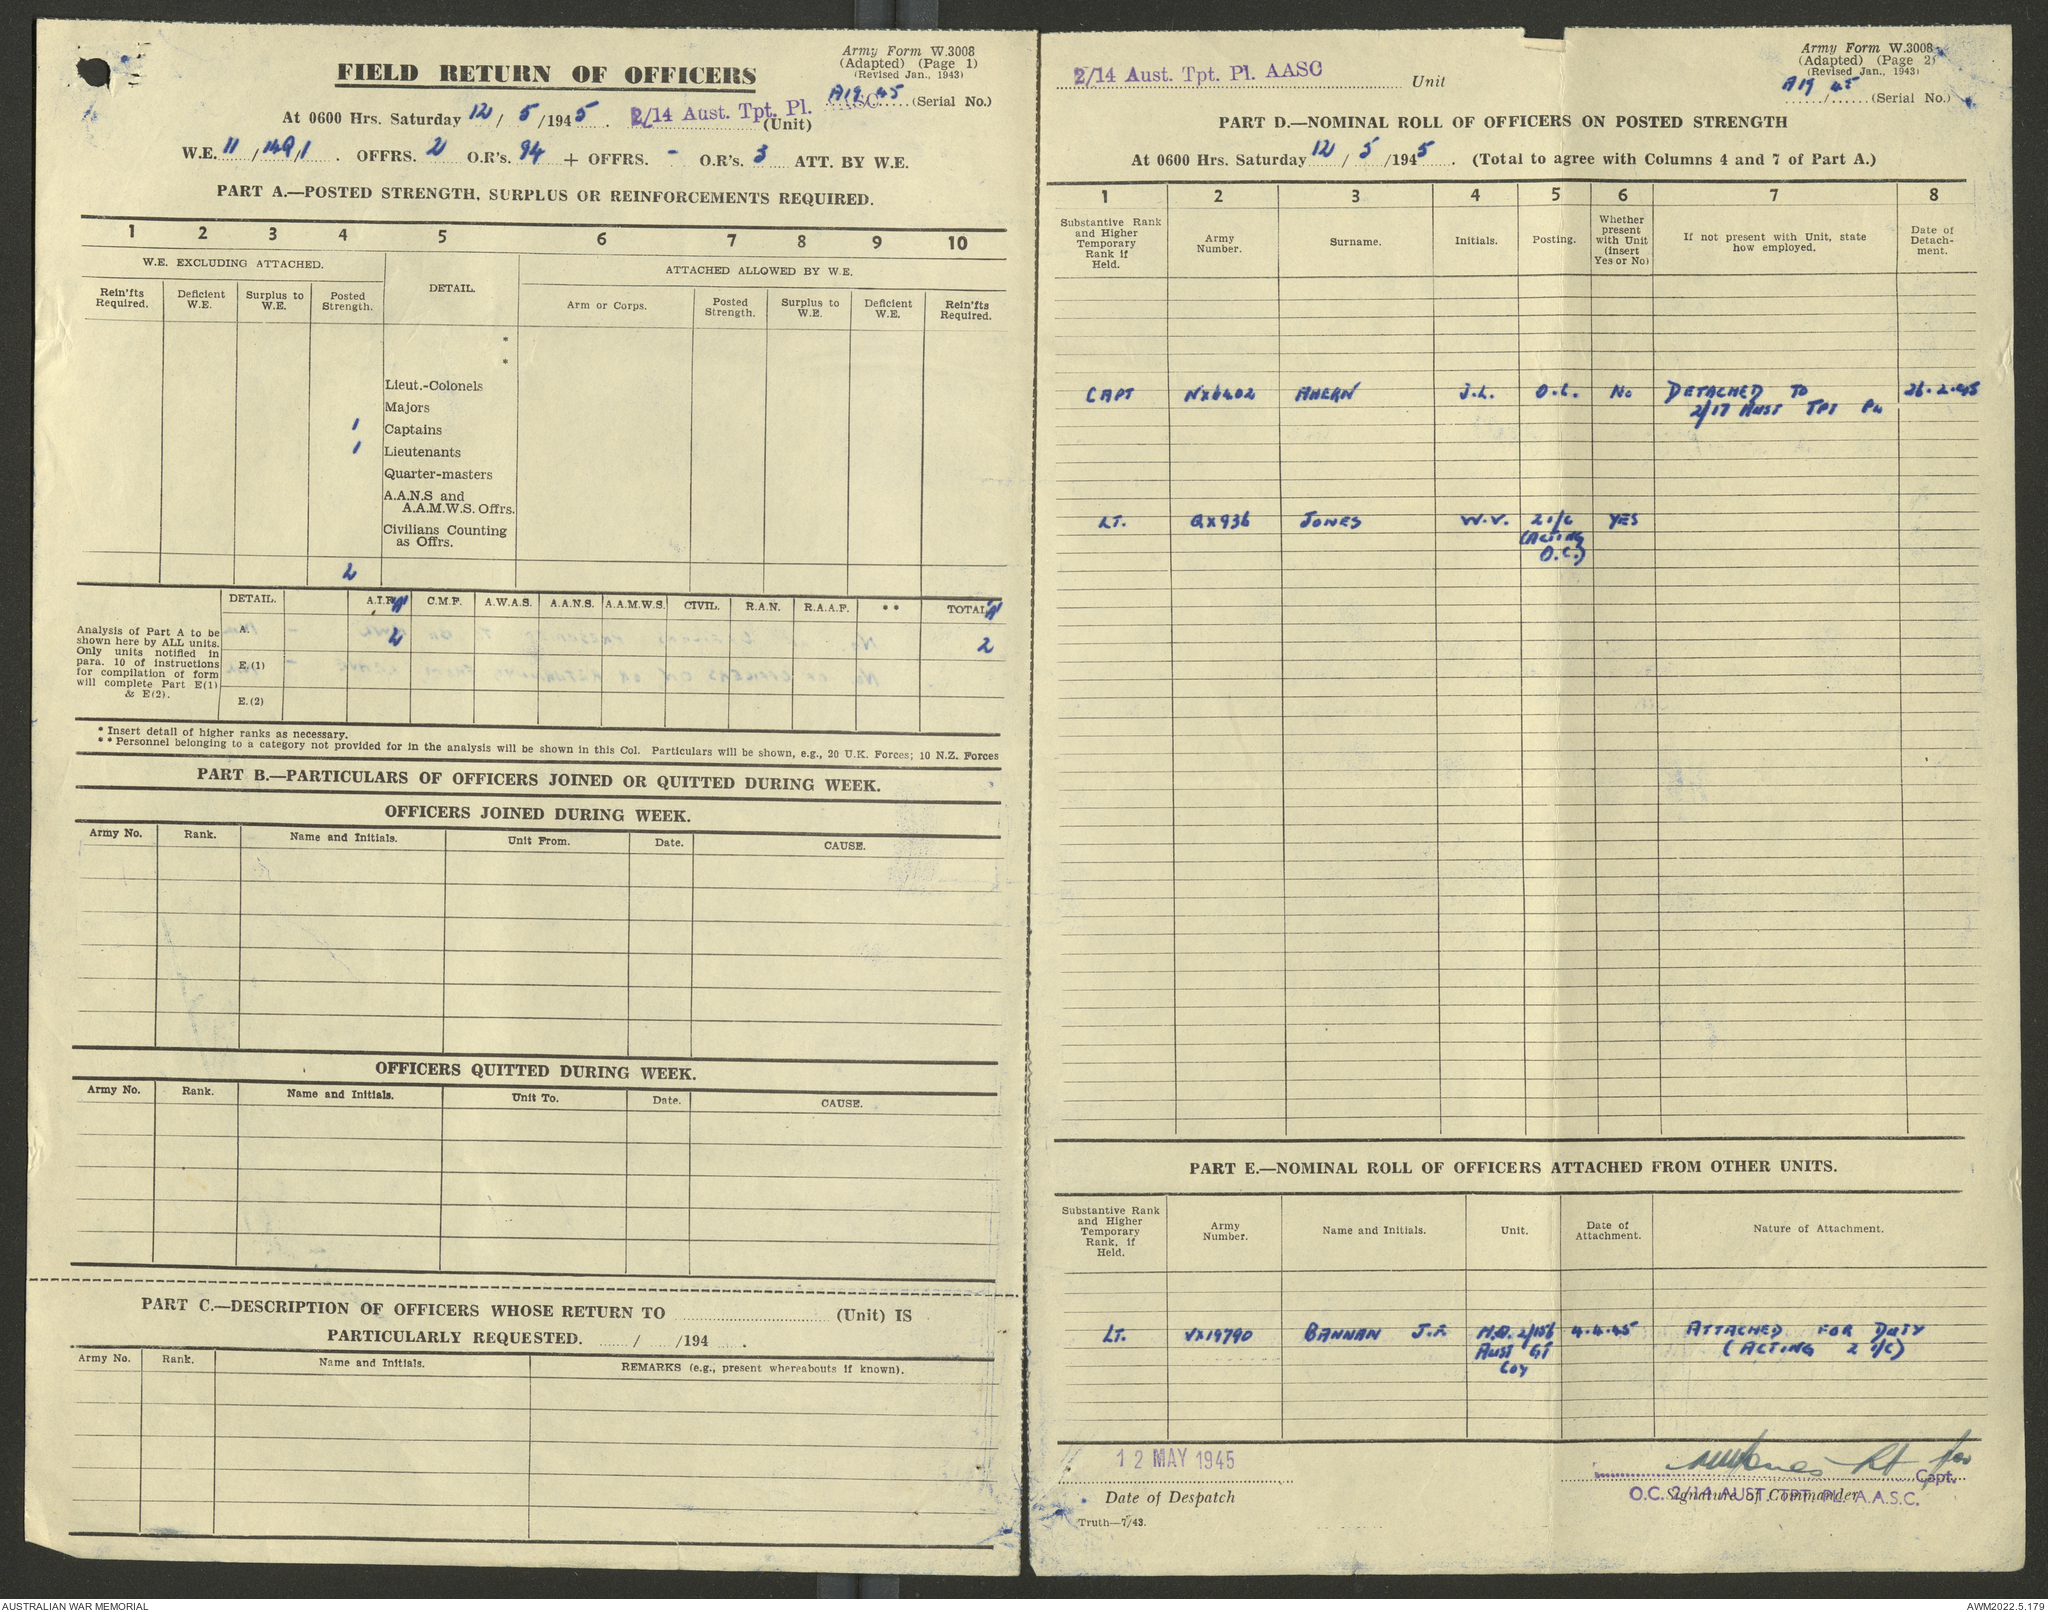 Army Form W.3008
(Adapted) (Page 1)
(Revised Jan., 1943)
FIELD RETURN OF OFFICERS
A19 45 (Serial No.)
At 0600 Hrs. Saturday 12/5/1945. 2/14 Aust. Tpt. Pl. AASC (Unit)
W.E. 11/149/1. OFFRS. 2 O.R's. 94 + OFFRS. - O.R's. 3 ATT. BY W.E.
PART A.—POSTED STRENGTH, SURPLUS OR REINFORCEMENTS REQUIRED.
1 2 3 4 5 6 7 8 9 10
W.E. EXCLUDING ATTACHED. DETAIL. ATTACHED ALLOWED BY W.E.
Rein'fts Required. Deficient W.E. Surplus to W.E. Posted Strength. Arm or Corps. Posted Strength. Surplus to W.E. Deficient W.E. Rein'fts Required.
*
*
Lieut.-Colonels
Majors
1 Captains
1 Lieutenants
Quarter-masters
A.A.N.S and
A.A.M.W.S. Offrs.
Civilians Counting
as Offrs.
2
DETAIL. A.I.F. C.M.F. A.W.A.S. A.A.N.S. A.A.M.W.S. CIVIL. R.A.N. R.A.A.F. ** TOTAL
Analysis of Part A to be
shown here by ALL units.
Only units notified in
para. 10 of instructions
for compilation of form
will complete Part E(1)
& E(2).
A. 2 2
E.(1)
E.(2)
* Insert detail of higher ranks as necessary.
** Personnel belonging to a category not provided for in the analysis will be shown in this Col. Particulars will be shown, e.g., 20 U.K. Forces; 10 N.Z. Forces
PART B.—PARTICULARS OF OFFICERS JOINED OR QUITTED DURING WEEK.
OFFICERS JOINED DURING WEEK.
Army No. Rank. Name and Initials. Unit From. Date. CAUSE.
OFFICERS QUITTED DURING WEEK.
Army No. Rank. Name and Initials. Unit To. Date. CAUSE.
PART C.—DESCRIPTION OF OFFICERS WHOSE RETURN TO (Unit) IS
PARTICULARLY REQUESTED. / /194 .
Army No. Rank. Name and Initials. REMARKS (e.g., present whereabouts if known).
Army Form W.3008
(Adapted) (Page 2)
(Revised Jan., 1943)
2/14 Aust. Tpt. Pl. AASC Unit
A19 45
/ (Serial No.)
PART D.—NOMINAL ROLL OF OFFICERS ON POSTED STRENGTH
At 0600 Hrs. Saturday 12/5/1945. (Total to agree with Columns 4 and 7 of Part A.)
1 2 3 4 5 6 7 8
Substantive Rank and Higher Temporary Rank if Held. Army Number. Surname. Initials. Posting. Whether present with Unit (insert Yes or No) If not present with Unit, state how employed. Date of Detach-ment.
CAPT NX6402 AHERN J.L. O.C. No DETACHED TO 26.2.45
2/17 AUST TPT PL
LT. QX936 JONES W.V. 2 i/c YES
(ACTING
O.C.)
PART E.—NOMINAL ROLL OF OFFICERS ATTACHED FROM OTHER UNITS.
Substantive Rank and Higher Temporary Rank, if Held. Army Number. Name and Initials. Unit. Date of Attachment. Nature of Attachment.
LT. VX19790 BANNAN J.F. H.Q. 2/156 4.4.45 ATTACHED FOR DUTY
AUST GT (ACTING 2 i/c)
COY
12 MAY 1945
Date of Despatch
Lt for
Capt.
O.C. 2/14 AUST. TPT. PL. A.A.S.C.
Signature of Commander
Truth—7/43.
AUSTRALIAN WAR MEMORIAL
AWM2022.5.179